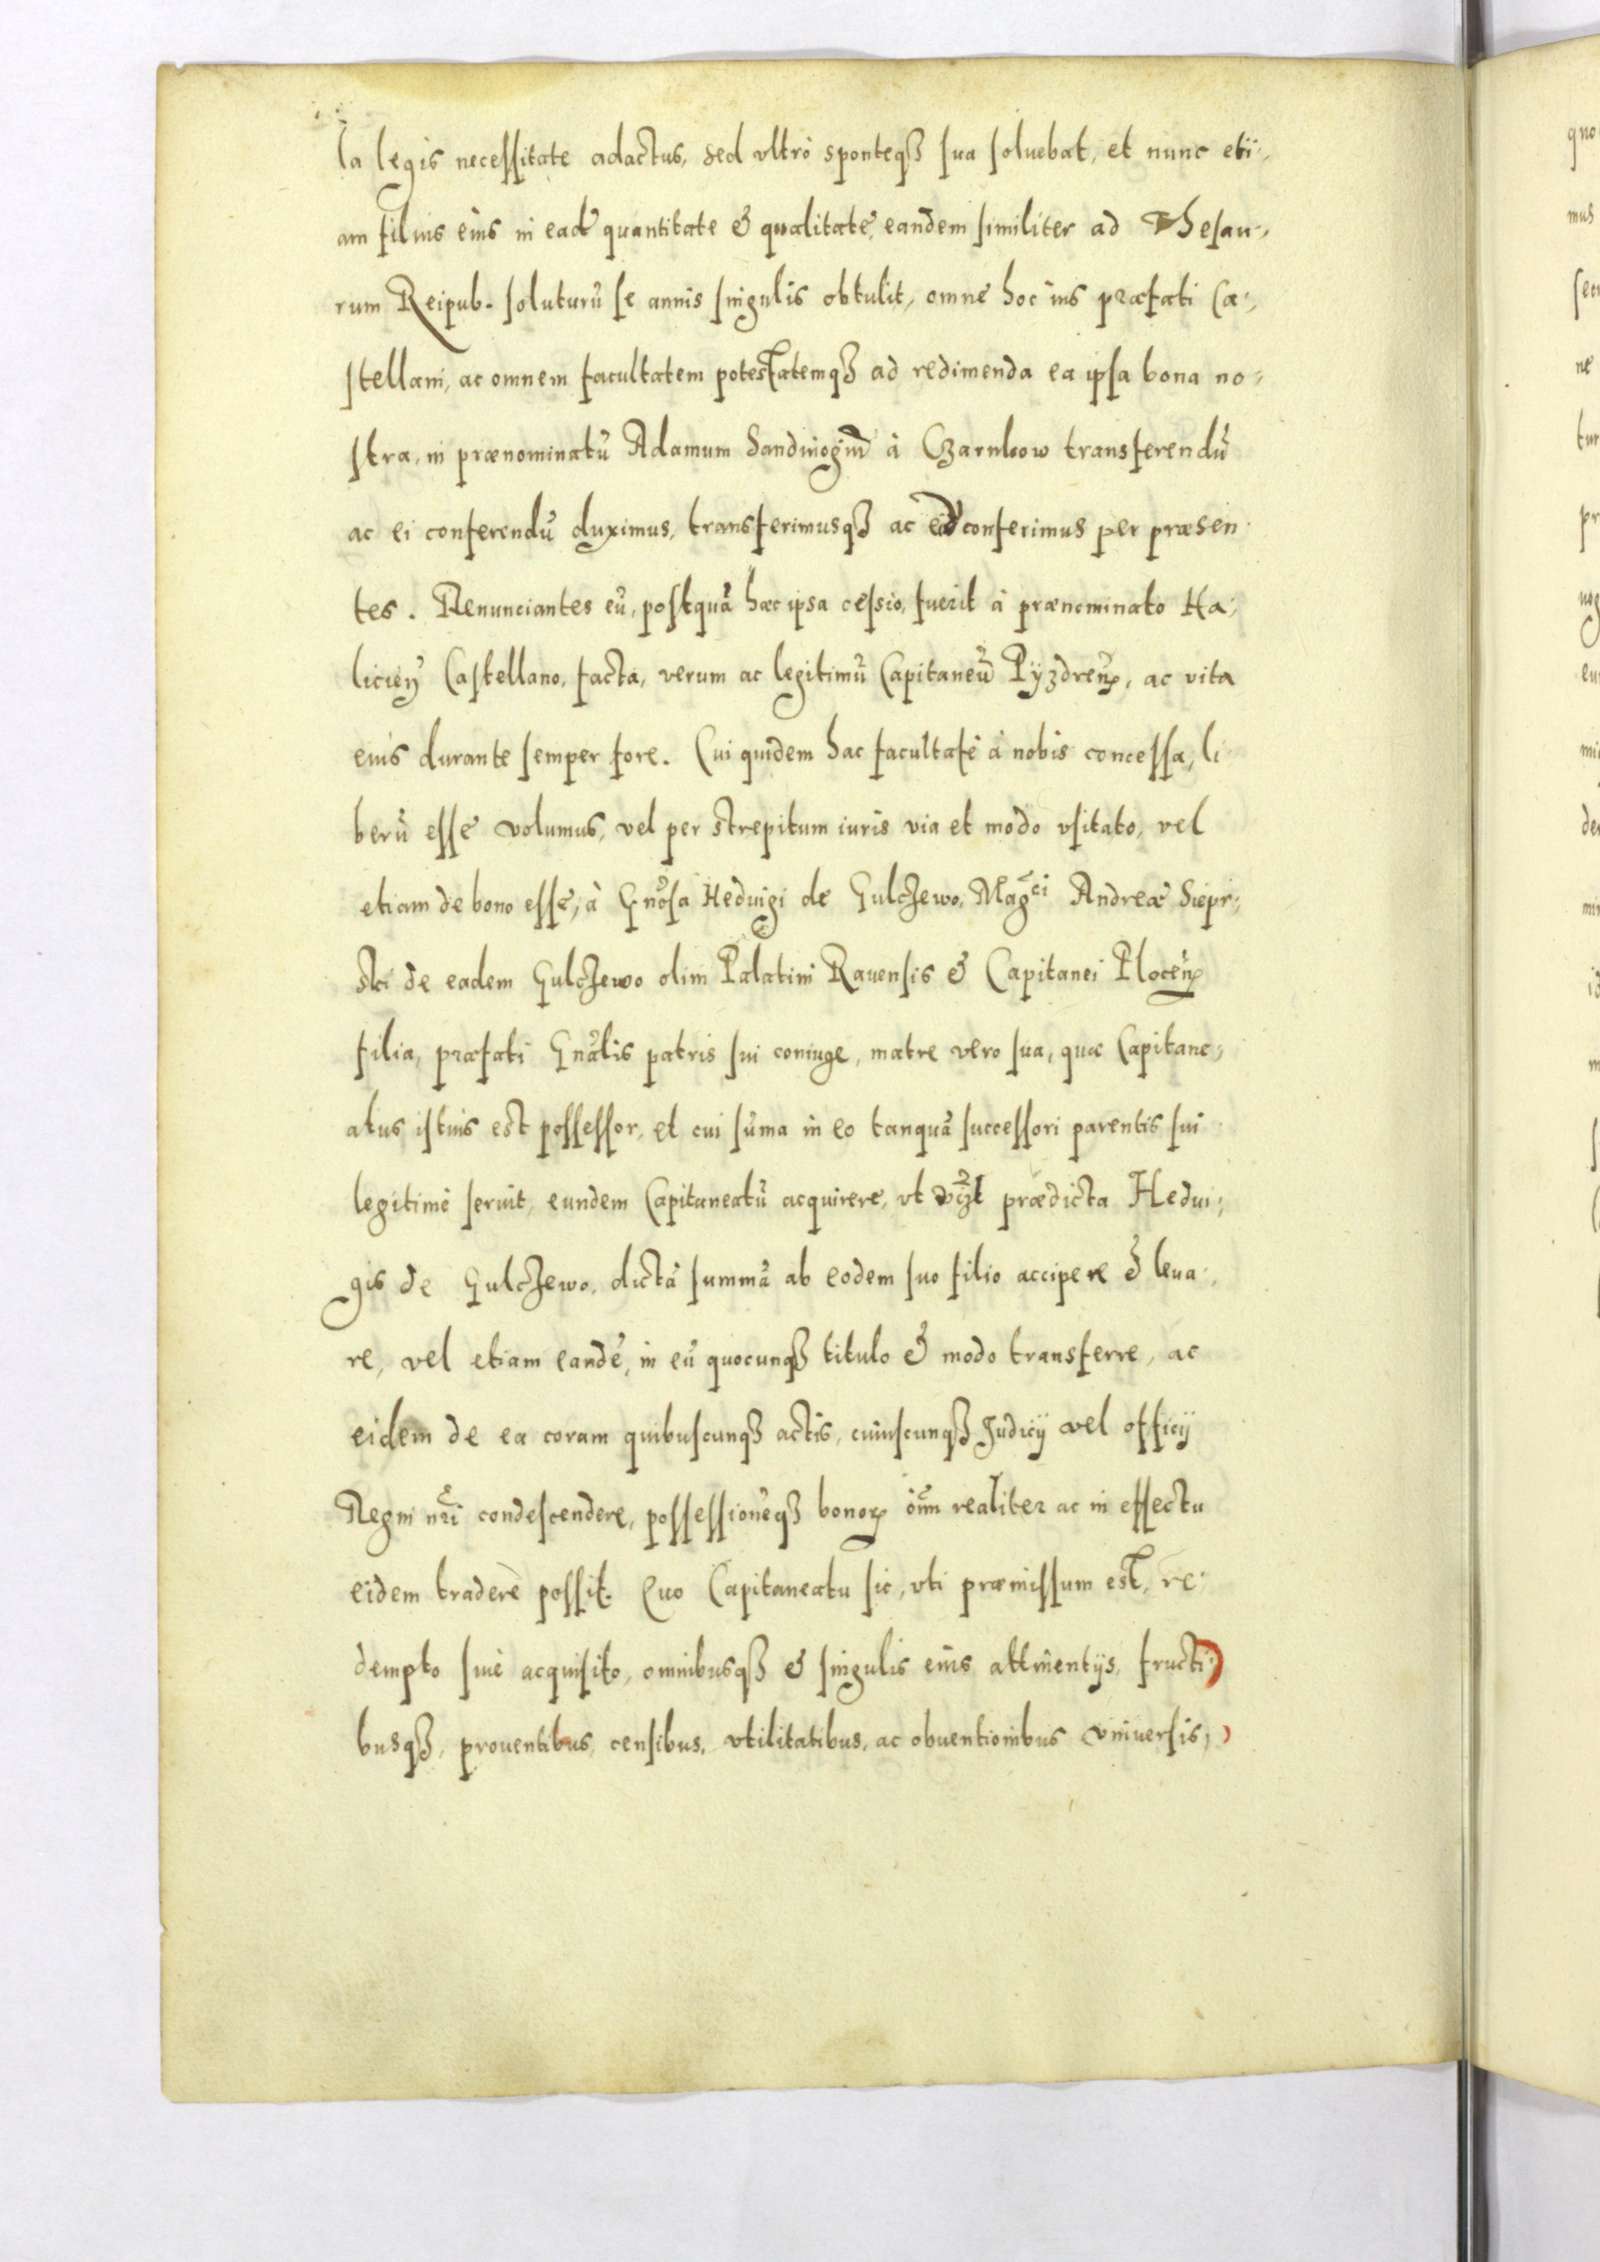 la legis necessitate adactus, sed vltrò sponteqȝ sua soluebat, et nunc eti-
am filius eius in eadē quantitate & qualitate, eandem similiter ad Thesau-
rum Reipub. soluturū se annis singulis obtulit, omne hoc ius præfati Ca-
stellani, ac omnem facultatem potestatemqȝ ad redimenda ea ipsa bona no-
stra, in prænominatū Adamum Sandiuogiū à Czarnkow transferendū
ac ei conferendū duximus, transferimusqȝ ac conferimus per præsen
tes. Renunciantes eū, postquā hæc ipsa cessio, fuerit à prænominato Ha-
licieñ Castellano, facta, verum ac legitimū Capitaneū Pÿzdreñ, ac vita
eius durante semper fore. Cui quidem hac facultate à nobis concessa, li
berū esse volumus, vel per strepitum iuris via et modo vsitato, vel
etiam de bono esse, à Gnosa Heduigi de Gulczewo, Magci Andreæ Siepr-
ski de eadem Gulczewo olim Palatini Rauensis & Capitanei Ploceñ
filia, præfati Gnālis patris sui coniuge, matre vero sua, quæ Capitane-
atus istius est possessor, et cui sūma in eo tanquā successori parentis sui
legitime seruit, eundem Capitaneatū acquirere, vt prædicta Hedui-
gis de Gulczewo, dictā summā ab eodem suo filio accipere & leua-
re, vel etiam eandē, in eū quocunqȝ titulo & modo transferre, ac
eidem de ea coram quibuscunqȝ actis, cuiuscunqȝ Judicij vel officij
Regni nr̄i condescendere, possessionēqȝ bonoꝝ realiter ac in effectu
eidem tradere possit. Quo Capitaneatu sic, vti præmissum est, re-
dempto siue acquisito, omnibusqȝ & singulis eius attinentijs, fructi-
busqȝ, prouentibus, censibus, vtilitatibus, ac obuentionibus vniuersis,